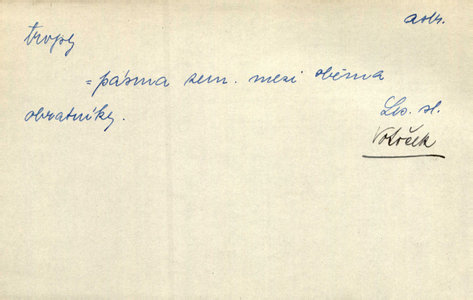 astr.
tropy
= pásma zem. mezi oběma
obratníky.
Lvo. sl.
Votoček